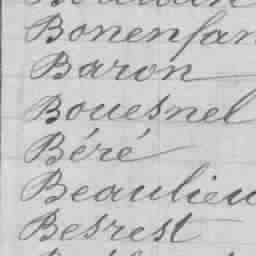 Bonenfan
Baron
Bouesnel
Béré
Beaulieu
Besrest